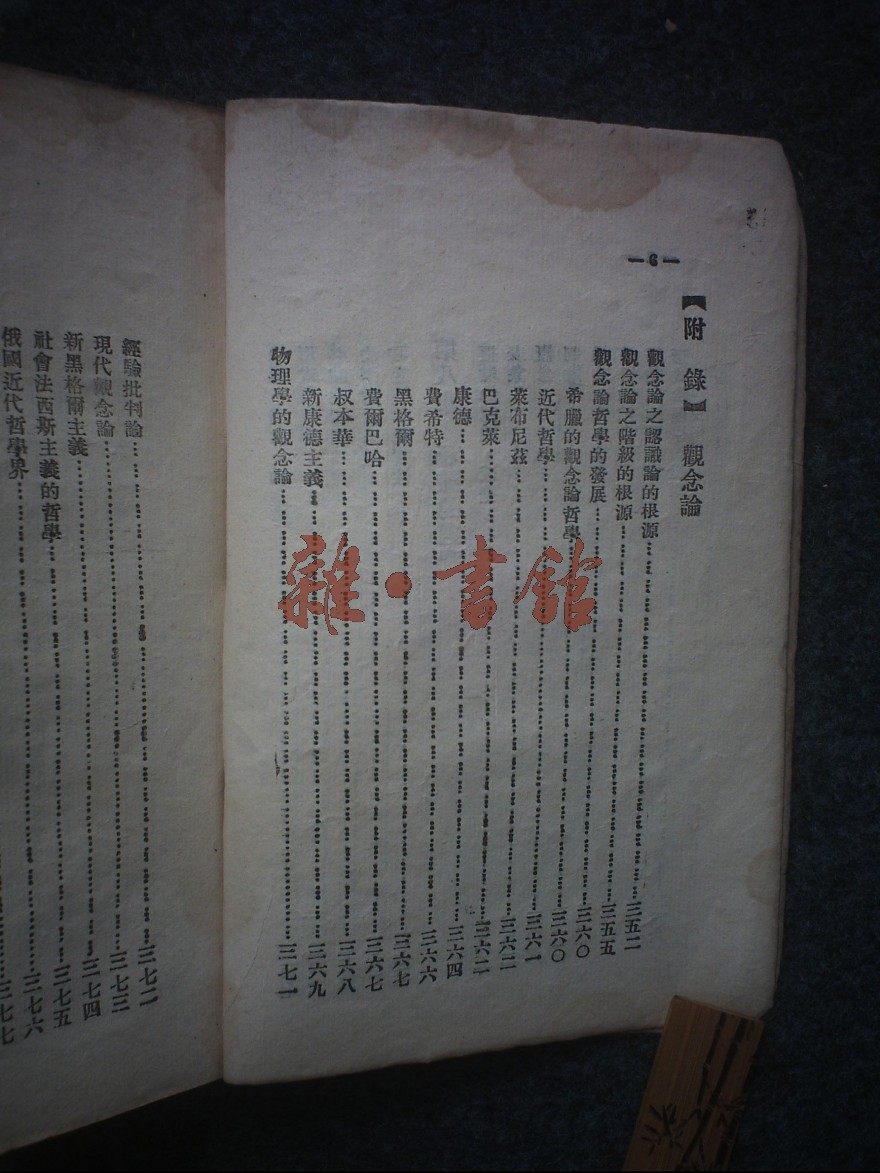 —6—
【附　錄】　觀念論
觀念論之認識論的根源……三五二
觀念論之階級的根源……三五五
觀念論哲學的發展……三六〇
希臘的觀念論哲學……三六〇
近代哲學……三六一
萊布尼茲……三六二
巴克萊……三六二
康德……三六四
費希特……三六六
黑格爾……三六七
費爾巴哈……三六七
叔本華……三六八
新康德主義……三六九
物理學的觀念論……三七一
經驗批判論……三七二
現代觀念論……三七三
新黑格爾主義……三七四
社會法西斯主義的哲學……三七五
俄國近代哲學界……三七六
三七七
雜·書館